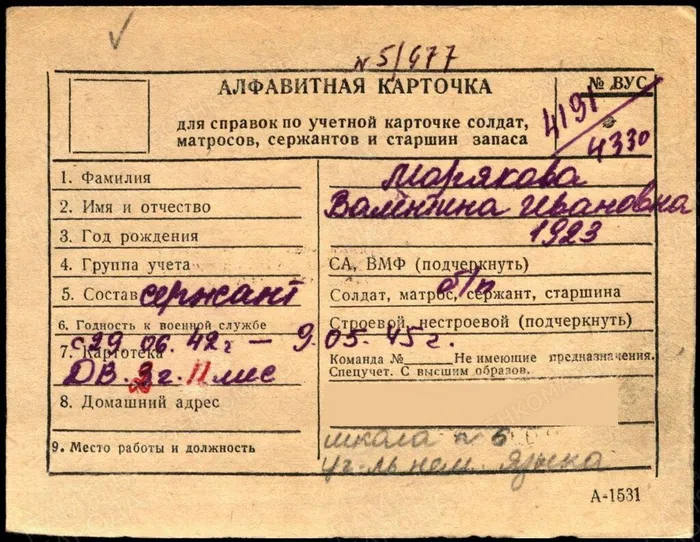 N 5/677
АЛФАВИТНАЯ КАРТОЧКА
№ ВУС
4191
4330
для справок по учетной карточке солдат,
матросов, сержантов и старшин запаса
1. Фамилия Морякова
2. Имя и отчество Валентина Ивановна
3. Год рождения 1923
4. Группа учета СА, ВМФ (подчеркнуть)
б/п
5. Состав сержант Солдат, матрос, сержант, старшина
6. Годность к военной службе Строевой, нестроевой (подчеркнуть)
с 29.06.42 г — 9.05.45 г.
7. Картотека Команда № Не имеющие предназначения.
Спецучет. С высшим образов.
ДВ. 2 г. 11 мес
8. Домашний адрес
9. Место работы и должность школа N 6
уч-ль нем. языка
А-1531